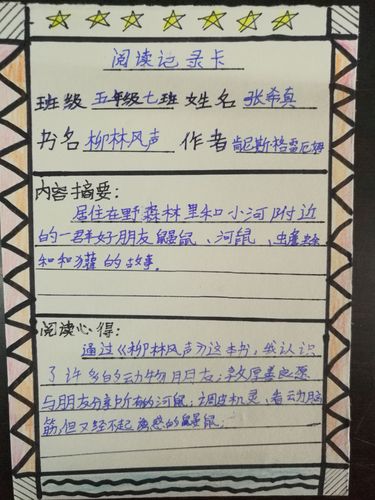 阅读记录卡
班级 五年级七班 姓名 张希真
书名 柳林风声 作者 肯尼斯格雷厄姆
内容摘要:
居住在野森林里和小河附近
的一群好朋友鼹鼠、河鼠、蟾蜍
和和獾的故事.
阅读心得:
通过《柳林风声》这本书,我认识
了许多的动物朋友:敦厚善良愿
与朋友分享所有的河鼠;调皮机灵,看动脑
筋,但又经不起诱惑的鼹鼠;